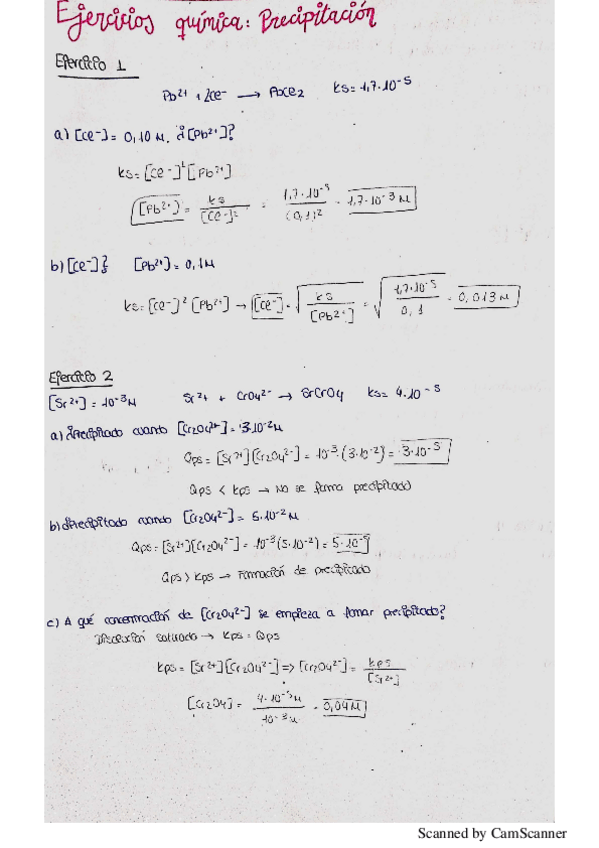 Ejercicios química: Precipitación
Ejercicio 1
Pb²⁺ + 2Cl⁻ → PbCl₂ Ks = 1,7·10⁻⁵
a) [Cl⁻] = 0,10 M. ¿[Pb²⁺]?
Ks = [Cl⁻]² [Pb²⁺]
[Pb²⁺] = Ks / [Cl⁻]² = 1,7·10⁻⁵ / (0,1)² = 1,7·10⁻³ M
b) [Cl⁻]? [Pb²⁺] = 0,1 M
Ks = [Cl⁻]² [Pb²⁺] → [Cl⁻] = √(Ks / [Pb²⁺]) = √(1,7·10⁻⁵ / 0,1) = 0,013 M
Ejercicio 2
[Sr²⁺] = 10⁻³ M Sr²⁺ + CrO4²⁻ → SrCrO4 Ks = 4·10⁻⁵
a) ¿Precipitado cuando [Cr2O4²⁻] = 3·10⁻² M
Qps = [Sr²⁺][Cr2O4²⁻] = 10⁻³·(3·10⁻²) = 3·10⁻⁵
Qps < Kps → No se forma precipitado
b) ¿Precipitado cuando [Cr2O4²⁻] = 5·10⁻² M
Qps = [Sr²⁺][Cr2O4²⁻] = 10⁻³(5·10⁻²) = 5·10⁻⁵
Qps > Kps → Formación de precipitado
c) A qué concentración de [Cr2O4²⁻] se empieza a formar precipitado?
Disolución saturado → Kps = Qps
Kps = [Sr²⁺][Cr2O4²⁻] => [Cr2O4²⁻] = Kps / [Sr²⁺]
[Cr2O4] = 4·10⁻⁵ M / 10⁻³ M = 0,04 M
Scanned by CamScanner